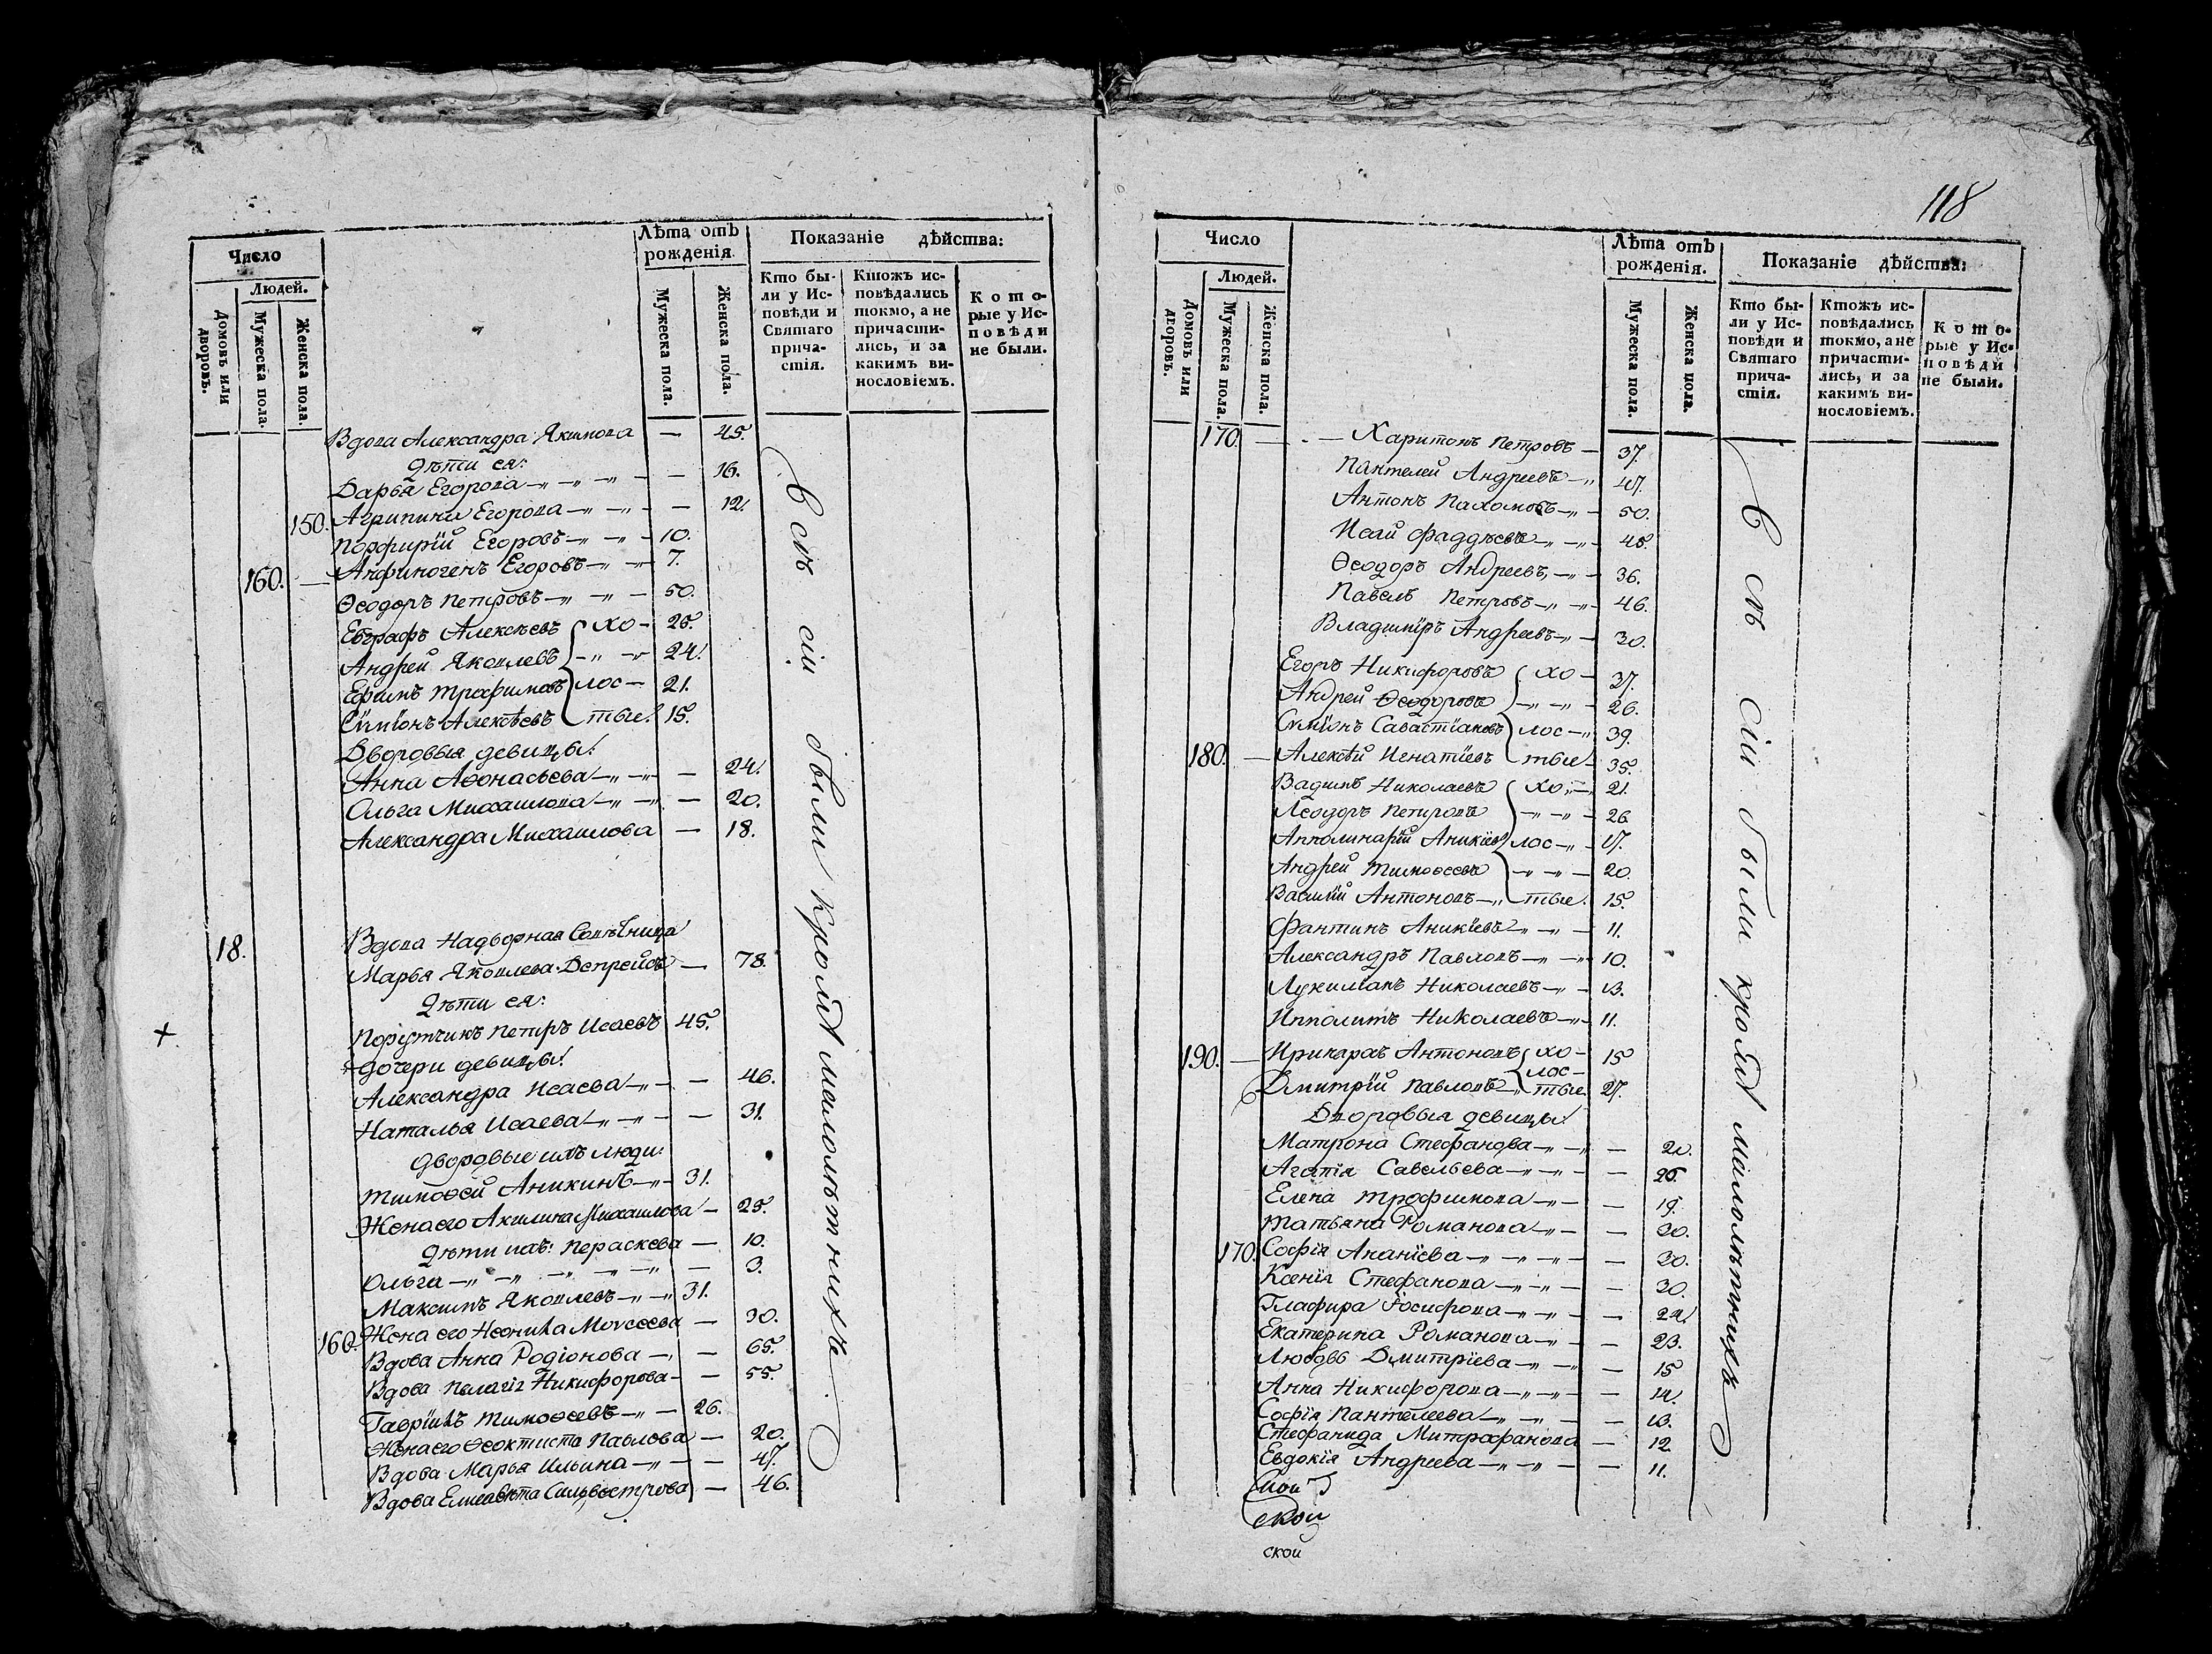 118
Число
Людей.
Домовъ или дворовъ.
Мужеска пола.
Женска пола
Лѣта отъ рожденія
Мужеска пола.
Женска пола.
Показаніе дѣйства:
Кто бы-
ли у Ис-
повѣди и
Святаго
прича-
стія.
Ктожъ ис-
повѣдались
токмо, а не
причасти-
лись, и за
какимъ ви-
нословіемъ.
Кото-
рые у Ис-
повѣди
не были.
Вдова Александра Якимова — 45.
Дѣти ея:
Дарья Егорова — 16.
150. Агрипина Егорова — 12.
Порфирій Егоровъ — 10.
160. — Анфиногенъ Егоровъ — 7.
Ѳеодоръ Петровъ — 50.
Евграфъ Алексѣевъ хо- 25.
Андрей Яковлевъ — 24.
Ефимъ Трофимовъ лос- 21.
Симіонъ Алексѣевъ тые. 15.
Дворовыя девицы:
Анна Аѳонасьева — 24.
Ольга Михаилова — 20.
Александра Михаилова — 18.
18. Вдова Надворная Совѣтница
Марья Яковлева Депрейсъ — 78.
Дѣти ея:
Порутчикъ Петръ Исаевъ 45.
Дочери девицы:
Александра Исаева — 46.
Наталья Исаева — 31.
Дворовые ихъ люди:
Тимоѳей Аникинъ — 31.
Жена его Акилина Михаилова — 25.
Дѣти ихъ: Пераскева — 10.
Ольга — 3.
Максимъ Яковлевъ — 31.
160. Жена его Неонила Моvсеева — 30.
Вдова Анна Родіонова — 65.
Вдова Пелагія Никифорова — 55.
Гавріилъ Тимоѳеевъ — 26.
Жена его Ѳеоктиста Павлова — 20.
Вдова Марья Ильина — 47.
Вдова Елисавета Сильвестрова — 46.
Всѣ сіи были кромѣ малолѣтнихъ.
Число
Людей.
Домовъ или дворовъ.
Мужеска пола.
Женска пола.
Лѣта отъ рожденія.
Мужеска пола.
Женска пола.
Показаніе дѣйства:
Кто бы-
ли у Ис-
повѣди и
Святаго
прича-
стія.
Ктожъ ис-
повѣдались
токмо, а не
причасти-
лись, и за
какимъ ви-
нословіемъ.
Кото-
рые у Ис-
повѣди
не были.
170. — Харитонъ Петровъ — 37.
Пантелей Андреевъ — 47.
Антонъ Пахомовъ — 50.
Исай Фаддѣевъ — 45.
Ѳеодоръ Андреевъ — 36.
Павелъ Петровъ — 46.
Владиміръ Андреевъ — 30.
Егоръ Никифоровъ хо- 37.
Андрей Ѳеодоровъ — 26.
Симіонъ Савастіановъ лос- 39.
180. — Алексѣй Игнатіевъ тые 35.
Вадимъ Николаевъ хо- 21.
Ѳеодоръ Петровъ — 26.
Апполинарій Аникіевъ лос- 17.
Андрей Тимоѳеевъ — 20.
Василій Антоновъ — тые. 15.
Фантинъ Аникіевъ — 11.
Александръ Павловъ — 10.
Лукиманъ Николаевъ — 13.
Ипполитъ Николаевъ — 11.
190. — Иринархъ Антоновъ хо- 15
лос-
Дмитрій Павловъ — тые. 27.
Дворовыя девицы:
Матрона Стефанова — 20.
Агапія Савельева — 25.
Елена Трофимова — 19.
Татьяна Романова — 20.
170. Софія Ананіева — 30.
Ксенія Стефанова — 30.
Глафира Іосифова — 24.
Екатерина Романова — 23.
Любовь Дмитріева — 15
Анна Никифорова — 14.
Софія Пантелеева — 13.
Стефанида Митрофанова — 12
Евдокія Андреева — 11.
ской
ской
Всѣ сіи были кромѣ малолѣтнихъ